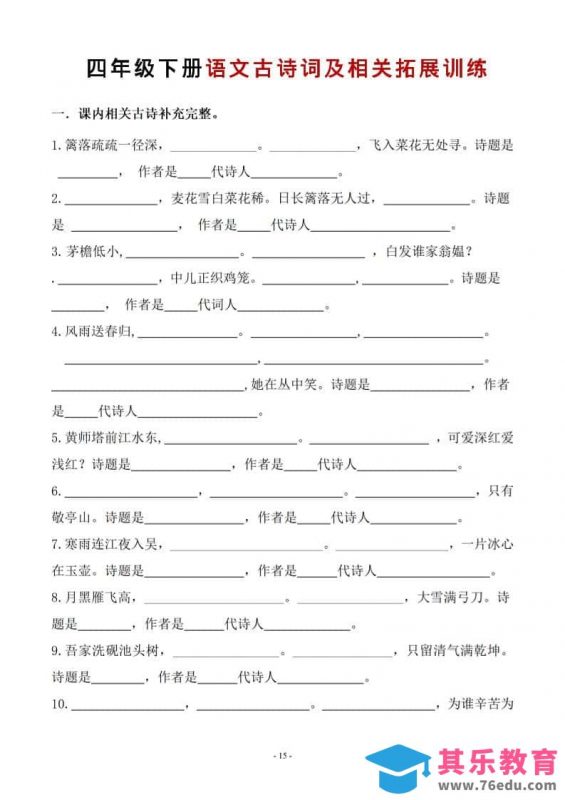 四年级下册语文古诗词及相关拓展训练
一．课内相关古诗补充完整。
1.篱落疏疏一径深，____________。____________，飞入菜花无处寻。诗题是
________， 作者是____代诗人________________。
2.______________，麦花雪白菜花稀。日长篱落无人过，____________。诗题
是 ______________，作者是____代诗人________________。
3.茅檐低小,______________。______________ ，白发谁家翁媪？
.____________，中儿正织鸡笼。____________,____________。诗题是
________， 作者是____代词人____________。
4.风雨送春归,____________。____________,____________。
____________________,____________________。
____________________,她在丛中笑。诗题是____________，作者
是____代诗人________________。
5.黄师塔前江水东,____________。____________ ，可爱深红爱
浅红？诗题是____________，作者是____代诗人____________。
6.______________，______________。______________，只有
敬亭山。诗题是____________，作者是____代诗人____________。
7.寒雨连江夜入吴，____________。____________，一片冰心
在玉壶。诗题是____________，作者是____代诗人____________。
8.月黑雁飞高，____________。____________，大雪满弓刀。诗
题是________，作者是________代诗人____________。
9.吾家洗砚池头树，____________。____________，只留清气满乾坤。
诗题是________，作者是____代诗人____________。
10.______________，______________。______________，为谁辛苦为
- 15 -
其乐教育
www.76edu.com